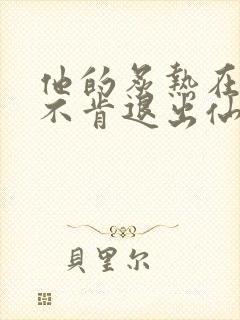 他的炙熱在
不肯退出仙
貝里尔